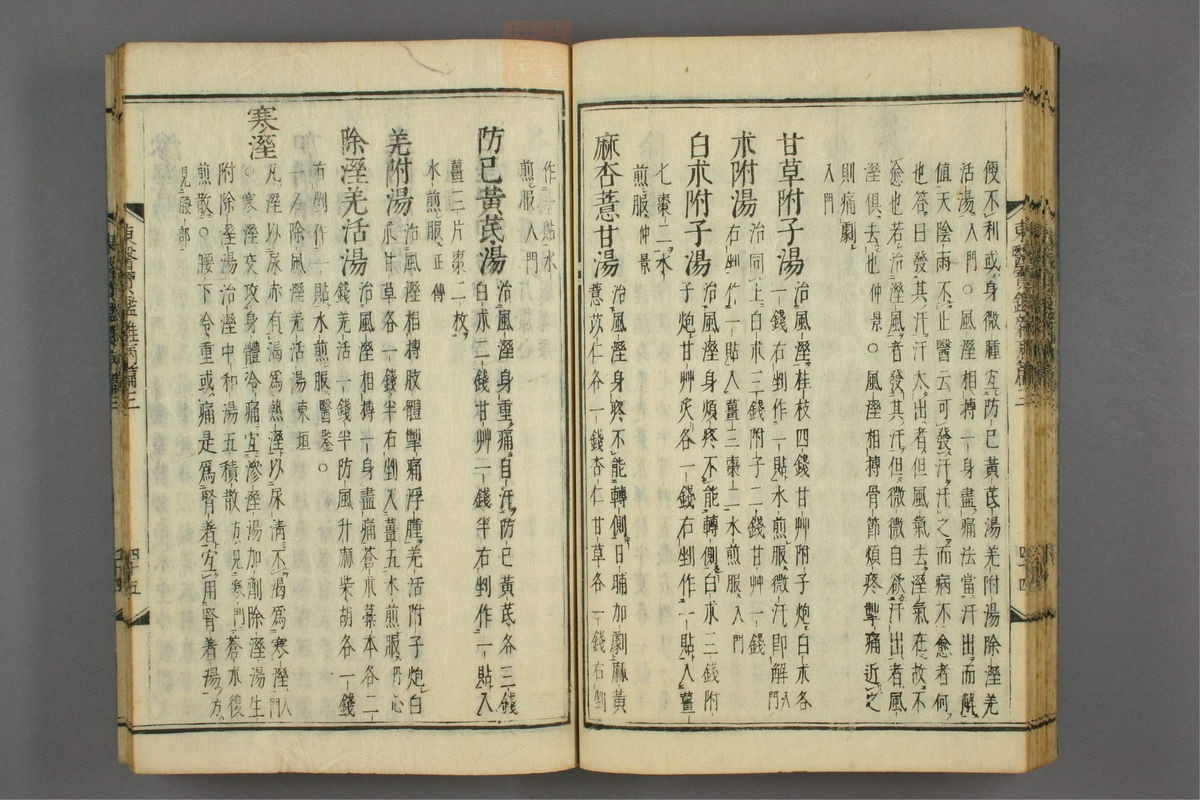 便不利或身微腫宜防已黃芪湯羌附湯除溼羌
活湯入門○風溼相搏一身盡痛法當汗出而解
値天陰雨不止醫云可發汗汗之而病不愈者何
也答曰發其汗汗大出者但風氣去溼氣在故不
愈也若治風溼者發其汗但微微自欲汗出者風
溼俱去也仲景○風溼相搏骨節煩疼掣痛近之
則痛劇
入門
甘草附子湯
治風溼桂枝四錢甘艸附子炮白朮各
一錢右剉作一貼水煎服微汗卽解入門
朮附湯
治同上白朮二錢附子二錢甘艸一錢
右剉作一貼入薑三棗二水煎服入門
白朮附子湯
治風溼身煩疼不能轉側白朮三錢附
子炮甘艸炙各一錢右剉作一貼入薑
七棗二水
煎服仲景
麻杏薏甘湯
治風溼身疼不能轉側日晡加劇麻黃
薏苡仁各一錢杏仁甘草各一錢右剉
作一貼水
煎服入門
防已黃芪湯
治風溼身重痛自汗防已黃芪各三錢
白朮二錢甘艸一錢半右剉作一貼入
薑三片棗二枚
水煎服正傳
羌附湯
治風溼相搏肢體掣痛浮腫羌活附子炮白
朮甘草各一錢半右剉入薑五水煎服丹心
除溼羌活湯
治風溼相搏一身盡痛蒼朮藁本各二
錢羌活一錢半防風升麻柴胡各一錢
右剉作一貼水煎服醫鑒○
一名除風溼羌活湯東垣
寒溼
凡溼以尿赤有渴爲熱溼以尿淸不渴爲寒溼入門
○寒溼交攻身體冷痛宜滲溼湯加劑除溼湯生
附除溼湯治溼中和湯五積散方見寒門蒼朮復
煎散○腰下冷重或痛是爲腎著宜用腎著湯方
見腰部
東醫寶鑑雜病篇三
四十四
四十五